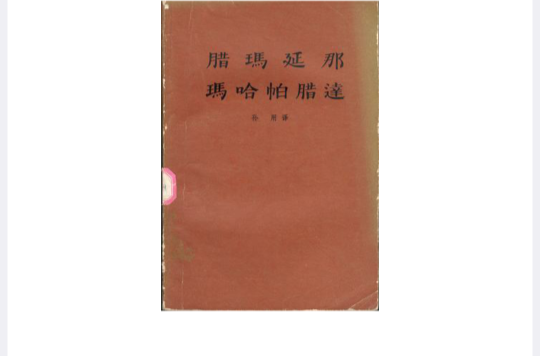 腊瑪延那
瑪哈帕腊達
孫用譯